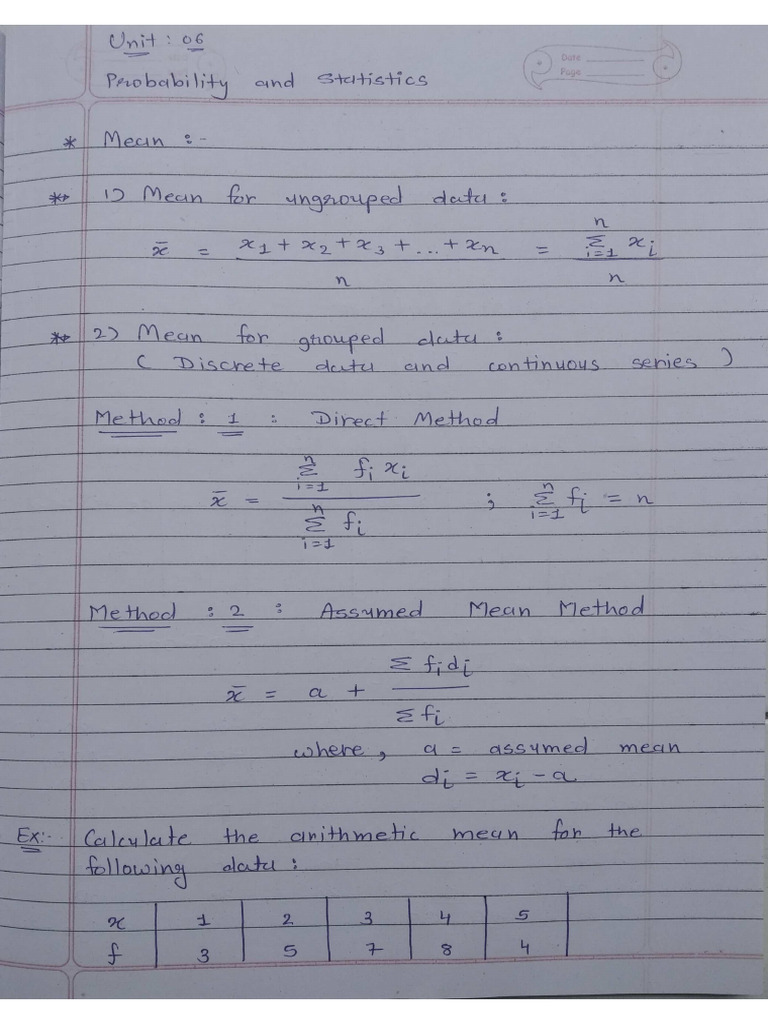 Unit : 06
Date
Page
Probability and Statistics
* Mean :-
** 1) Mean for ungrouped data :
x̄ = x₁ + x₂ + x₃ + ... + xₙ / n = ⁿΣᵢ₌₁ xᵢ / n
** 2) Mean for grouped data :
( Discrete data and continuous series )
Method : 1 : Direct Method
x̄ = ⁿΣᵢ₌₁ fᵢ xᵢ / ⁿΣᵢ₌₁ fᵢ ; ⁿΣᵢ₌₁ fᵢ = n
Method : 2 : Assumed Mean Method
x̄ = a + Σ fᵢdᵢ / Σfᵢ
where, a = assumed mean
dᵢ = xᵢ - a
Ex:- Calculate the arithmetic mean for the
following data :
x 1 2 3 4 5
f 3 5 7 8 4